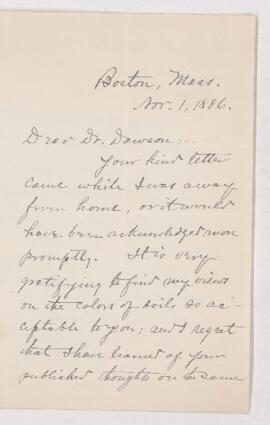 Boston, Mass.
Nov. 1, 1886.
Dear Dr. Dawson:-
Your kind letter
came while I was away
from home, or it would
have been acknowledged more
promptly. It is very
gratifying to find my views
on the colors of soils so ac-
ceptable to you; and I regret
that I have learned of your
published thoughts on the same